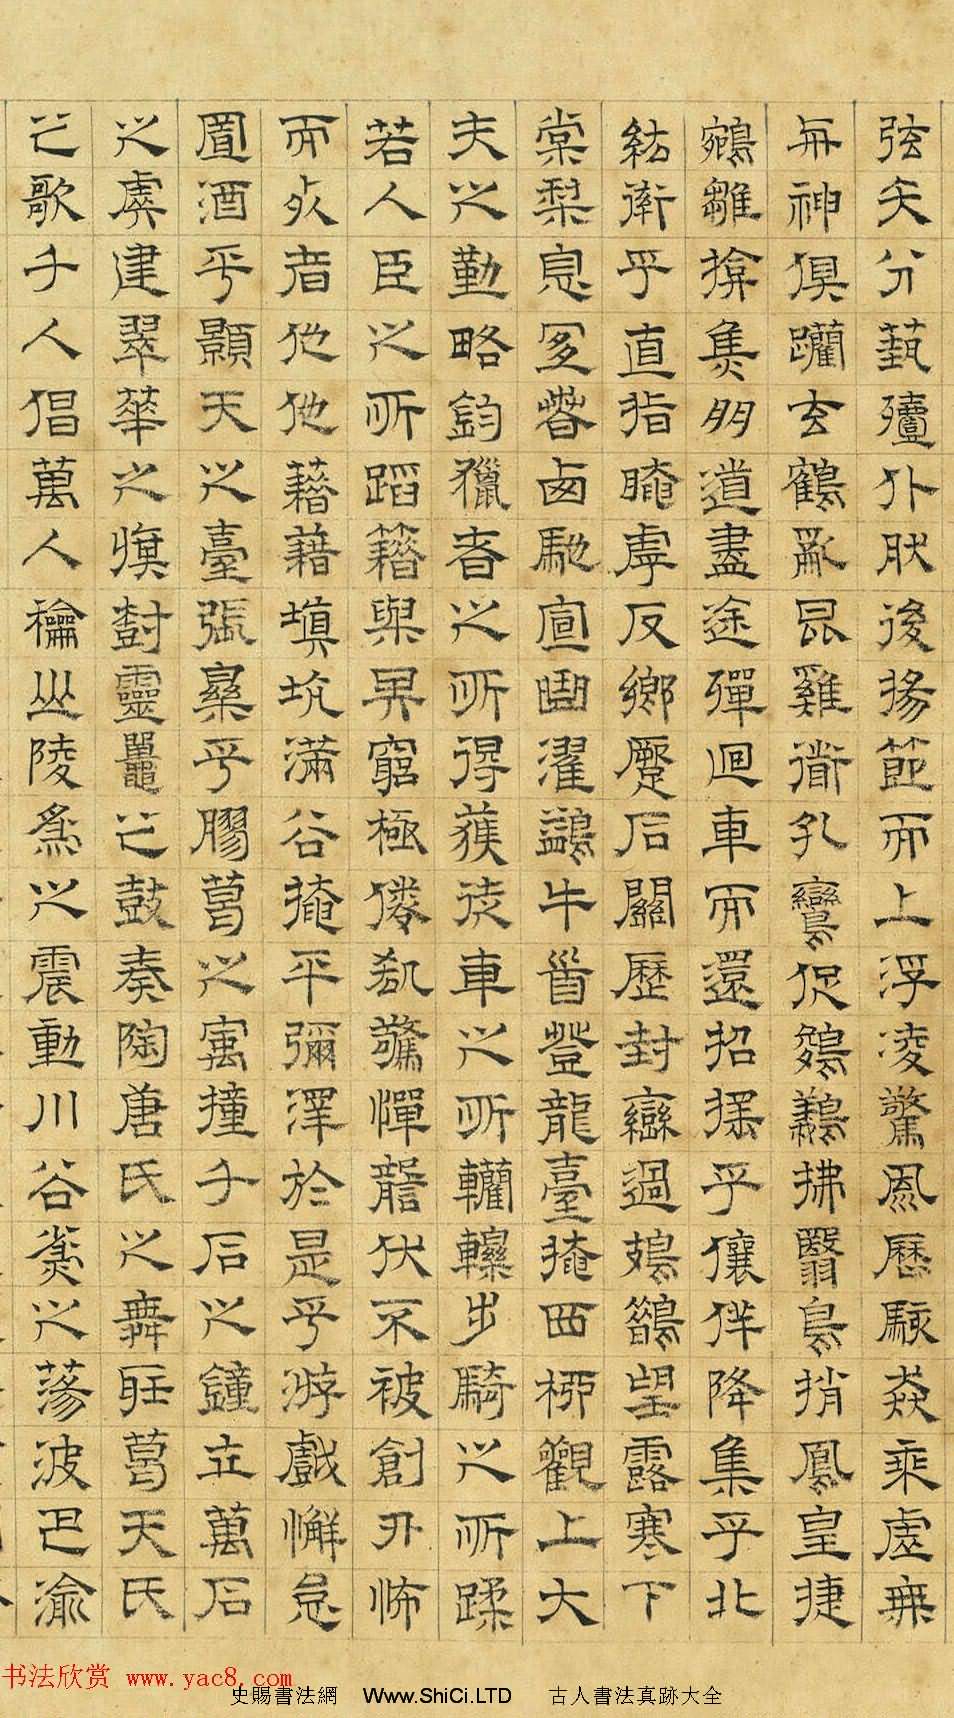 弦矢分藝殪仆肰後揚節而上浮凌驚風歷駭猋乘虛無
与神俱躪玄鶴亂昆雞遒孔鸞促鵔鸃拂翳鳥捎鳳皇捷
鵷雛揜焦朋道盡途殫迴車而還招搖乎儴佯降集乎北
紘衛乎直指晻虖反鄉蹷石關歷封巒過鳷鵲望露寒下
棠棃息宜萅卤馳宣曲濯鷁牛首登龍臺掩西桺觀上大
夫之勤略鈞獵者之所得獲徒車之所轥轢步騎之所蹂
若人臣之所蹈籍與其窮極倦谻驚憚讋伏不被創刃怖
而死者他他藉藉填坑滿谷掩平彌澤於是乎游戲懈怠
置酒乎顥天之臺張樂乎膠葛之寓撞千石之鐘立萬石
之虡建翠華之旗樹靈鼉之鼓奏陶唐氏之舞聽葛天氏
之歌千人倡萬人龢山陵為之震動川谷為之蕩波巴渝
书法欣赏 www.yac8.com
史賜書法網 Www.ShiCi.LTD 古人書法真跡大全